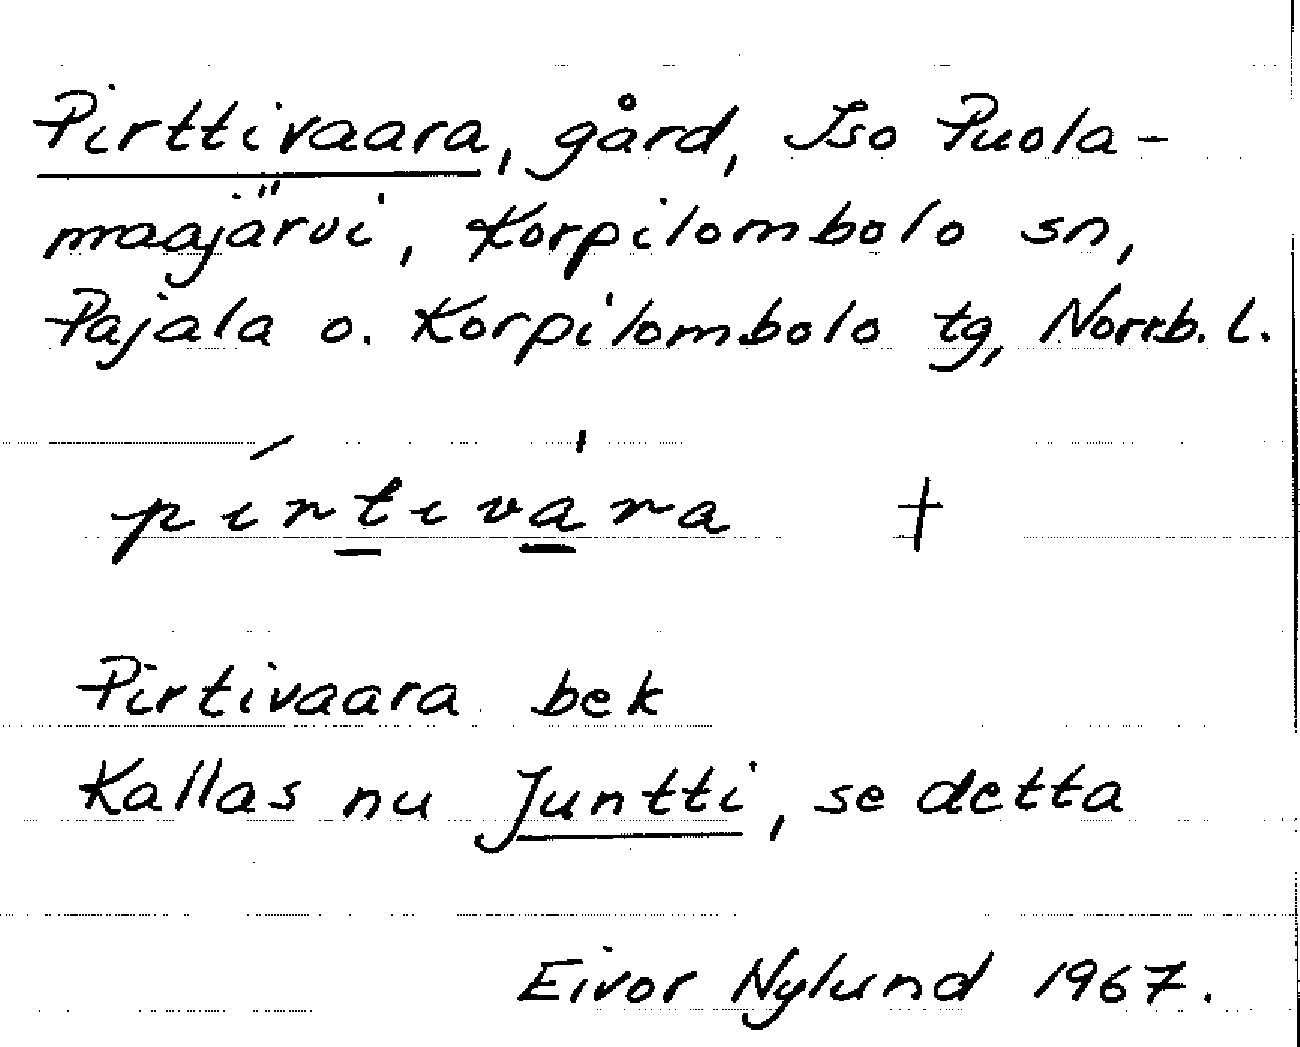 Pirttivaara, gård, Iso Puola-
maajärvi, Korpilombolo sn,
Pajala o. Korpilombolo tg, Norrb. l.
pirtivara +
Pirtivaara bek
Kallas nu Juntti, se detta
Eivor Nylund 1967.